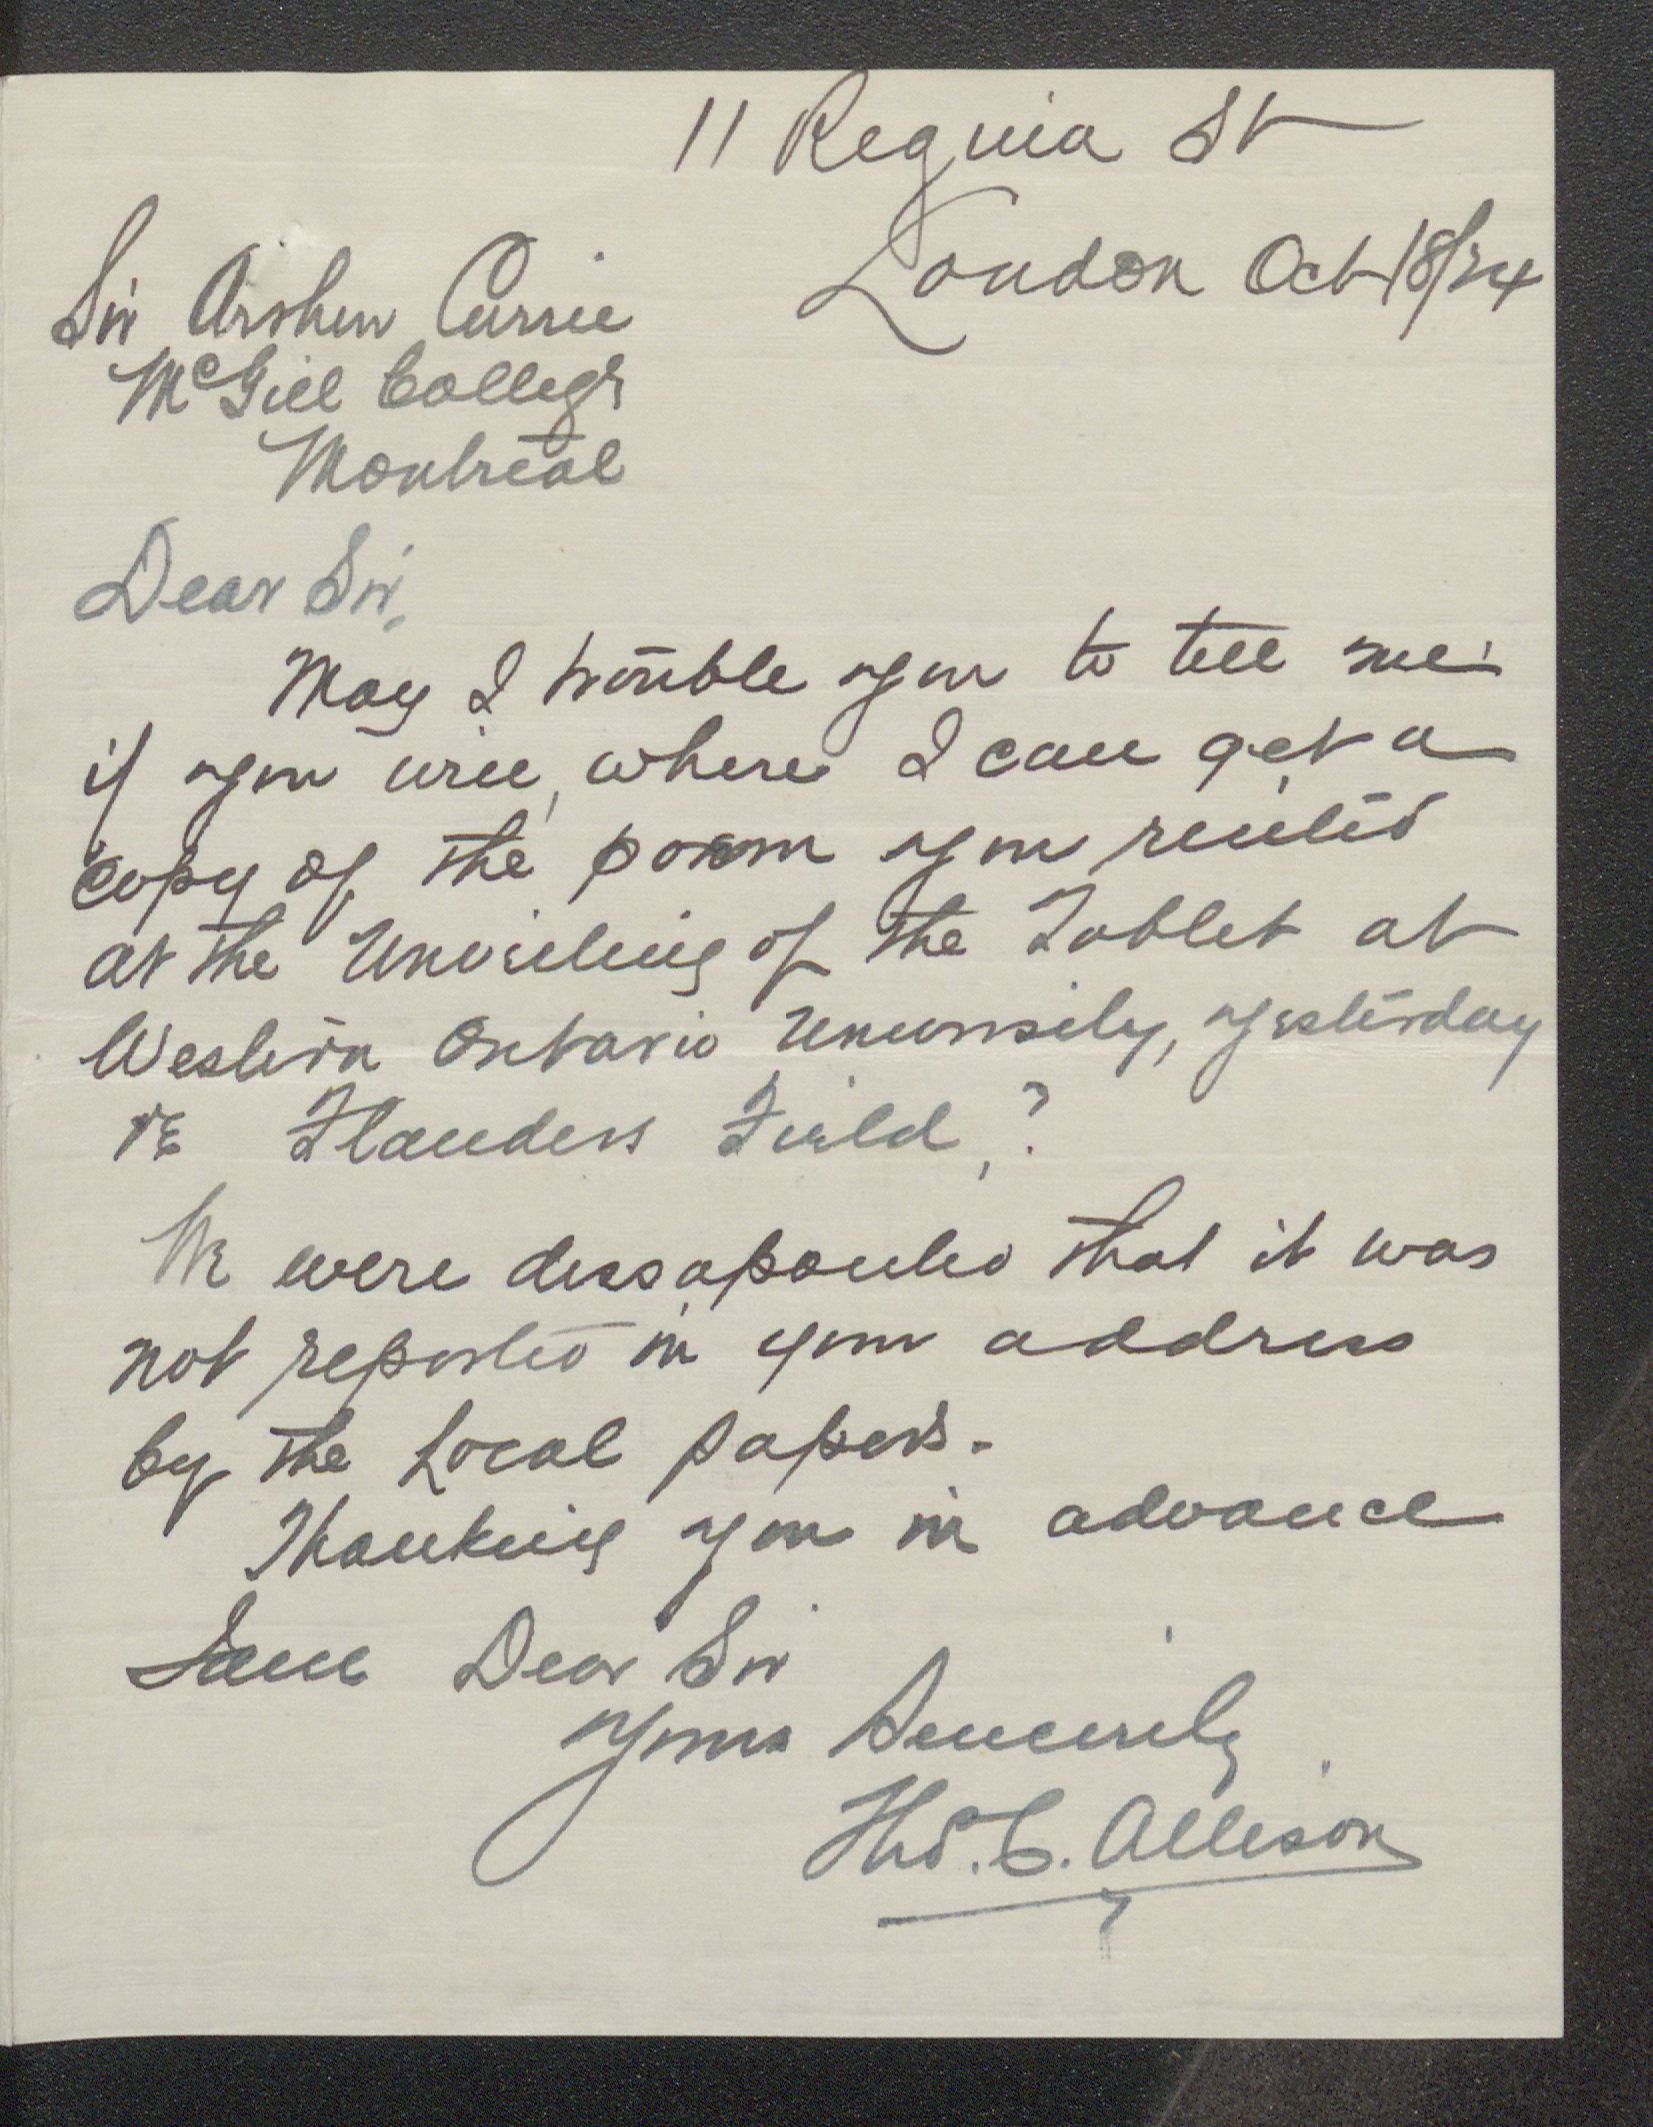 11 Reguia St
London Oct 18/24
Sir Arthur Currie
McGill College
Montreal
Dear Sir,
May I trouble you to tell me
if you will, where I can get a
copy of the poem you recited
at the Unveiling of the Tablet at
Western Ontario University, yesterday
re Flanders Field, ?
We were dissapointed that it was
not reported in your address
by the Local papers.
Thanking you in advance
I am Dear Sir
Yours Sincerely
Thos. C. Allison